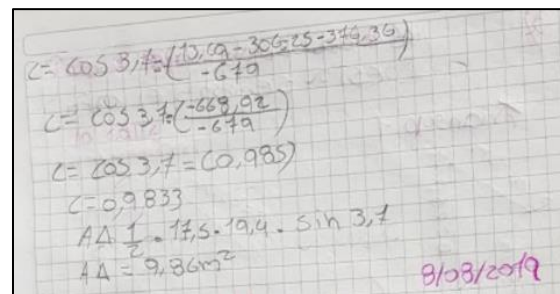 C = cos 3,7 = (13,69 - 306,25 - 376,36 / -679)
C = cos 3,7 = (-668,92 / -679)
C = cos 3,7 = (0,985)
C = 0,9833
A∆ 1/2 • 17,5 • 19,4 • sin 3,7
A∆ = 9,86m²
8/08/2019